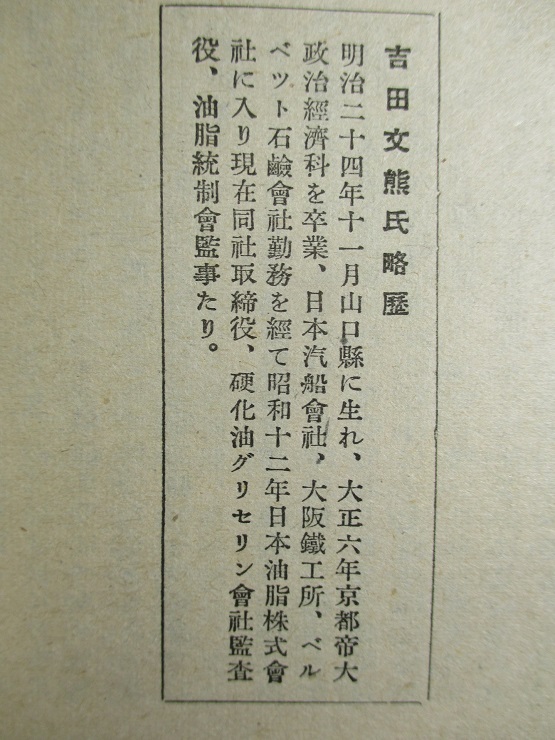 吉田文熊氏略歷
明治二十四年十一月山口縣に生れ、大正六年京都帝大
政治經濟科を卒業、日本汽船會社、大阪鐵工所、ベル
ベツト石鹼會社勤務を經て昭和十二年日本油脂株式會
社に入り現在同社取締役、硬化油グリセリン會社監査
役、油脂統制會監事たり。